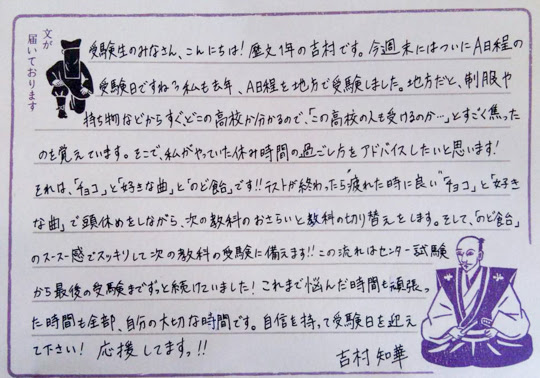 文が
届いております
受験生のみなさん、こんにちは！歴文1年の吉村です。今週末にはついにA日程の
受験日ですね？私も去年、A日程を地方で受験しました。地方だと、制服や
持ち物などからすぐ、どこの高校か分かるので、「この高校の人も受けるのか…」とすごく焦った
のを覚えています。そこで、私がやっていた休み時間の過ごし方をアドバイスしたいと思います！
それは、「チョコ」と「好きな曲」と「のど飴」です!!テストが終わったら"疲れた時に良い"「チョコ」と「好き
な曲」で頭休めをしながら、次の教科のおさらいと教科の切り替えをします。そして、「のど飴」
のスースー感でスッキリして次の教科の受験に備えます!!この流れはセンター試験
から最後の受験までずっと続けていました！これまで悩んだ時間も頑張っ
た時間も全部、自分の大切な時間です。自信を持って受験日を迎え
て下さい！応援してまっす!!
吉村知華